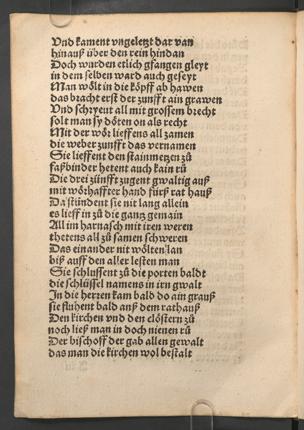 Vnd kament vngeletzt dar van
hinauß über den rein hindan
Doch wurden etlich gfangen gleyt
in dem selben ward auch geseyt
Man wölt in die köpff ab hawen
das bracht erst der zunfft ain grawen
Vnd schryent all mit grossem brecht
solt man sy döten on als recht
Mit der wör lieffens all zamen
die weber zunfft das vernamen
Sie lieffent den stainmetzen zů
faßbinder hetent auch kain rů
Die drei zünfft zugent gwaltig auß
mit wörhaffter hand fürß rat hauß
Da stůndent sie nit lang allein
es lieff in zů die gantz gemain
All im harnasch mit iren weren
thetens all zů samen schweren
Das einander nit wölten lan
biß auff den aller lesten man
Sie schlussent zů die porten baldt
die schlüssel namens in irn gwalt
In die herren kam bald do ain grauß
sie fluhent bald auß dem rathauß
Den kirchen vnd den clöstern zů
noch ließ man in doch nienen rů
Der bischoff der gab allen gewalt
das man die kirchen wol bestalt